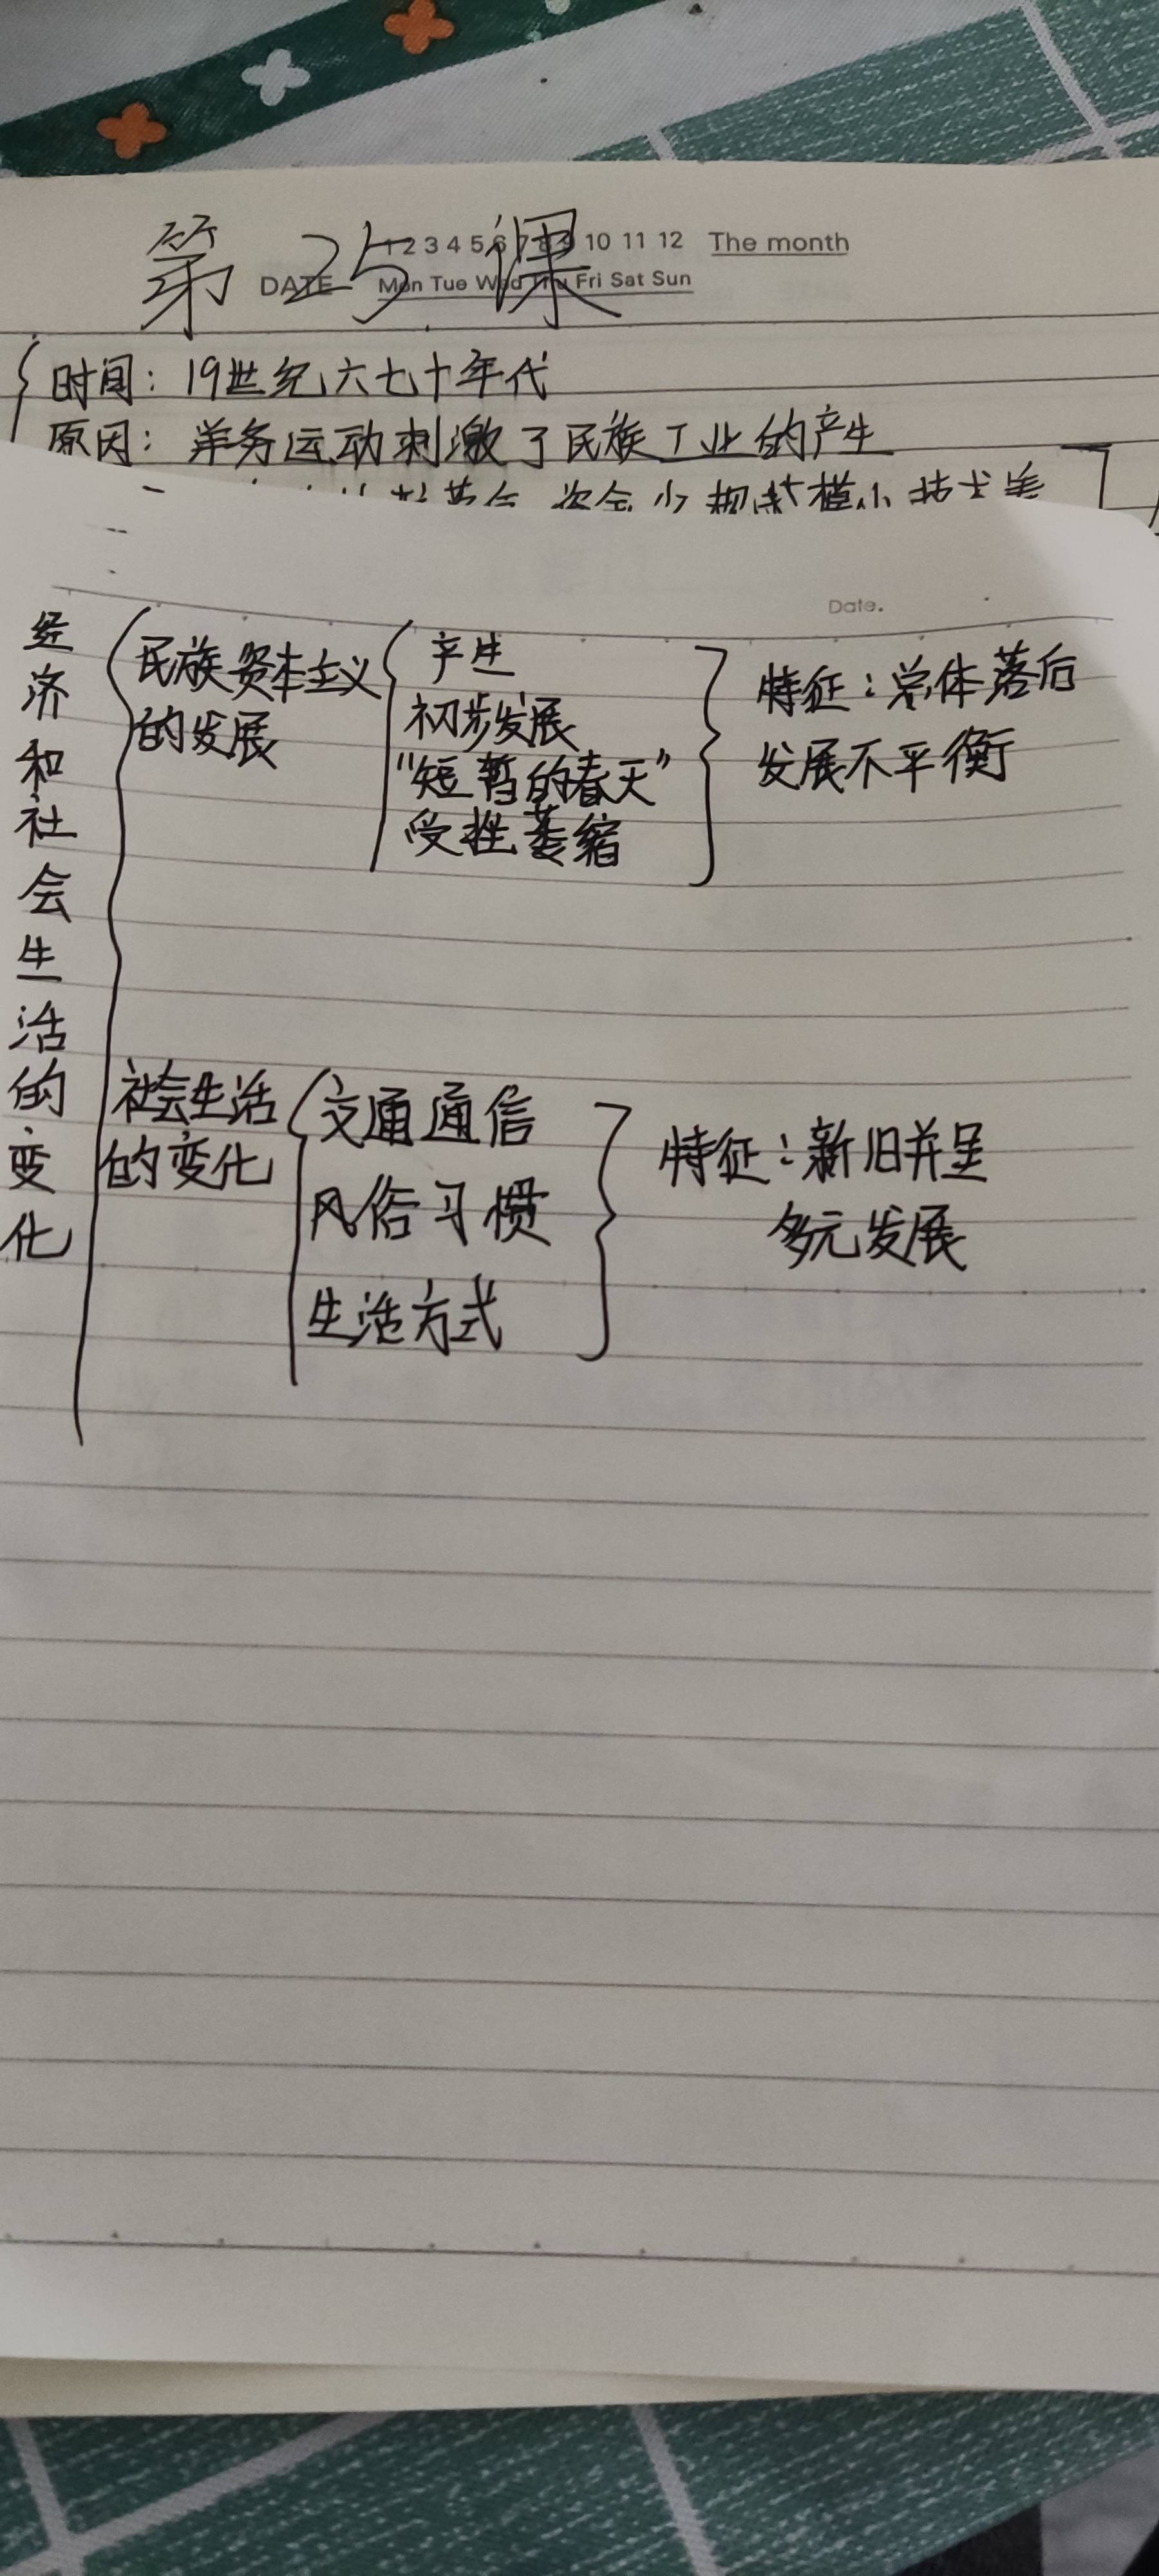 第25课
1 2 3 4 5 6 7 8 9 10 11 12 The month
DATE Mon Tue Wed Thu Fri Sat Sun
时间：19世纪六七十年代
原因：洋务运动刺激了民族工业的产生
资金少 规模小 技术
Date.
经济和社会生活的变化
民族资本主义
的发展
产生
初步发展
"短暂的春天"
受挫萎缩
特征：总体落后
发展不平衡
社会生活
的变化
交通通信
风俗习惯
生活方式
特征：新旧并呈
多元发展